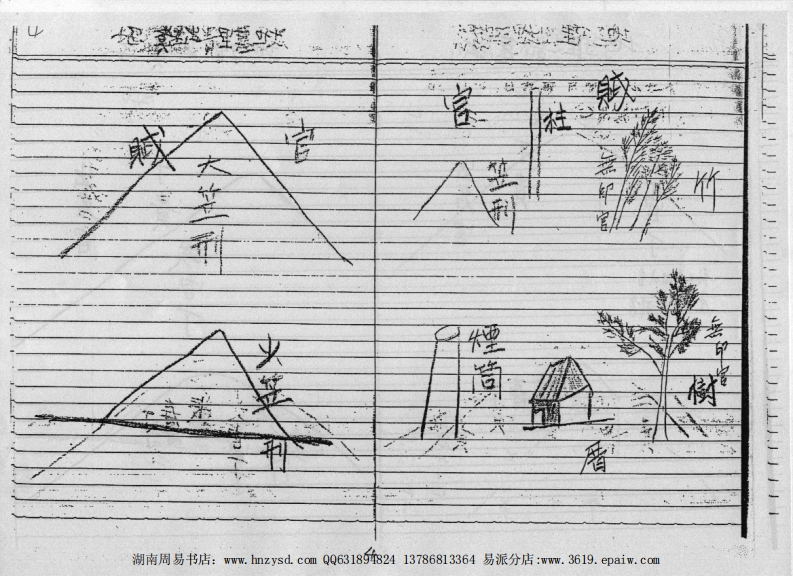 4
賊
官
大笠刑
火笠刑
官
柱
賊
笠刑
無印官
竹
煙筒
厝
無印官
樹
4
湖南周易书店: www.hnzysd.com QQ631894824 13786813364 易派分店:www.3619.epaiw.com